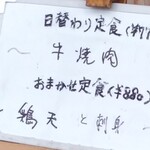 日替わり定食(¥7
〜 牛焼肉
おまかせ定食(¥880)
鶏天と刺身